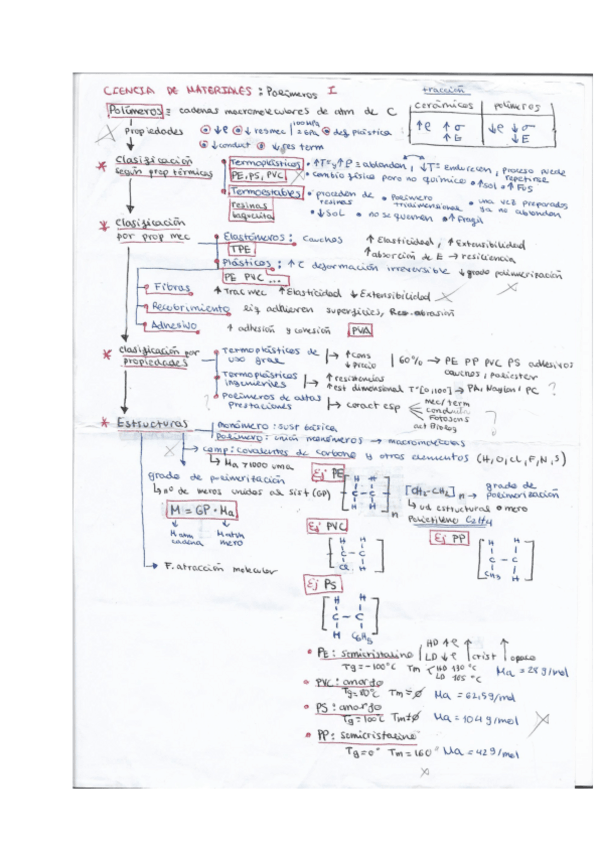 CIENCIA DE MATERIALES: Polímeros I
tracción
cerámicos polímeros
↑ρ ↑σ ↑E
↓ρ ↓σ ↓E
Polímeros = cadenas macromoleculares de atm de C
Propiedades ↓ρ ↓resmec def plástica
↓conduct ↓res term
* Clasificación según prop térmicas
Termoplásticos
PE, PS, PVC
cambio físico pero no químico
Termoestables
resinas
baquelita
proceden de resinas
Polímero tridimensional
una vez preparados ya no ablandan
↓Sol
no se queman
↑fragil
* Clasificación por prop mec
Elastómeros: cauchos ↑Elasticidad, ↑Extensibilidad
TPE
↑absorción de E → resiliencia
Plásticos: ↑C deformación irreversible ↓grado polimerización
PE PVC ...
Fibras ↑Trac mec ↑Elasticidad ↓Extensibilidad
Recobrimiento liq adhieren superficies, Rec. abrasión
Adhesivo ↑ adhesión y cohesión PVA
* Clasificación por propiedades
Termoplásticos de uso gral ↑cons ↓precio 60% → PE PP PVC PS adhesivos
cauchos, poliester
Termoplásticos ingenieriles ↑resistencias
↑est dimensional Tª[0,100] → PA, Naylon / PC ?
Polímeros de altas prestaciones → caract esp
mec/term
?
* Estructuras
monómero: sust básica
polímero: unión monómeros → macromoléculas
comp: covalentes de carbono y otros elementos (H, O, CL, F, N, S)
Ma >1000 uma
grado de polimeritación
↳ nº de meros unidos (GP)
M = GP · Ma
cadena mero
F. atracción molecular
Ej PE
H H
C - C
H H
n
[CH2-CH2]n → grado de polimerización
↳ ud estructural o mero
Polietileno C2H4
Ej PVC
H H
C - C
CL H
Ej PP
H H
C - C
CH3 H
Ej PS
H H
C - C
H C6H5
• PE: semicristalino HD ↑ρ LD ↓ρ ↑crist ↑opaco
Tg = -100°C Tm HD 130 °C LD 105 °C Ma = 28 g/mol
• PVC: amorfo
Tg = 80°C Tm = ∅ Ma = 62,5 g/mol
• PS: amorfo
Tg = 100°C Tm = ∅ Ma = 104 g/mol
• PP: semicristalino
Tg = 0° Tm = 160° Ma = 42 g/mol